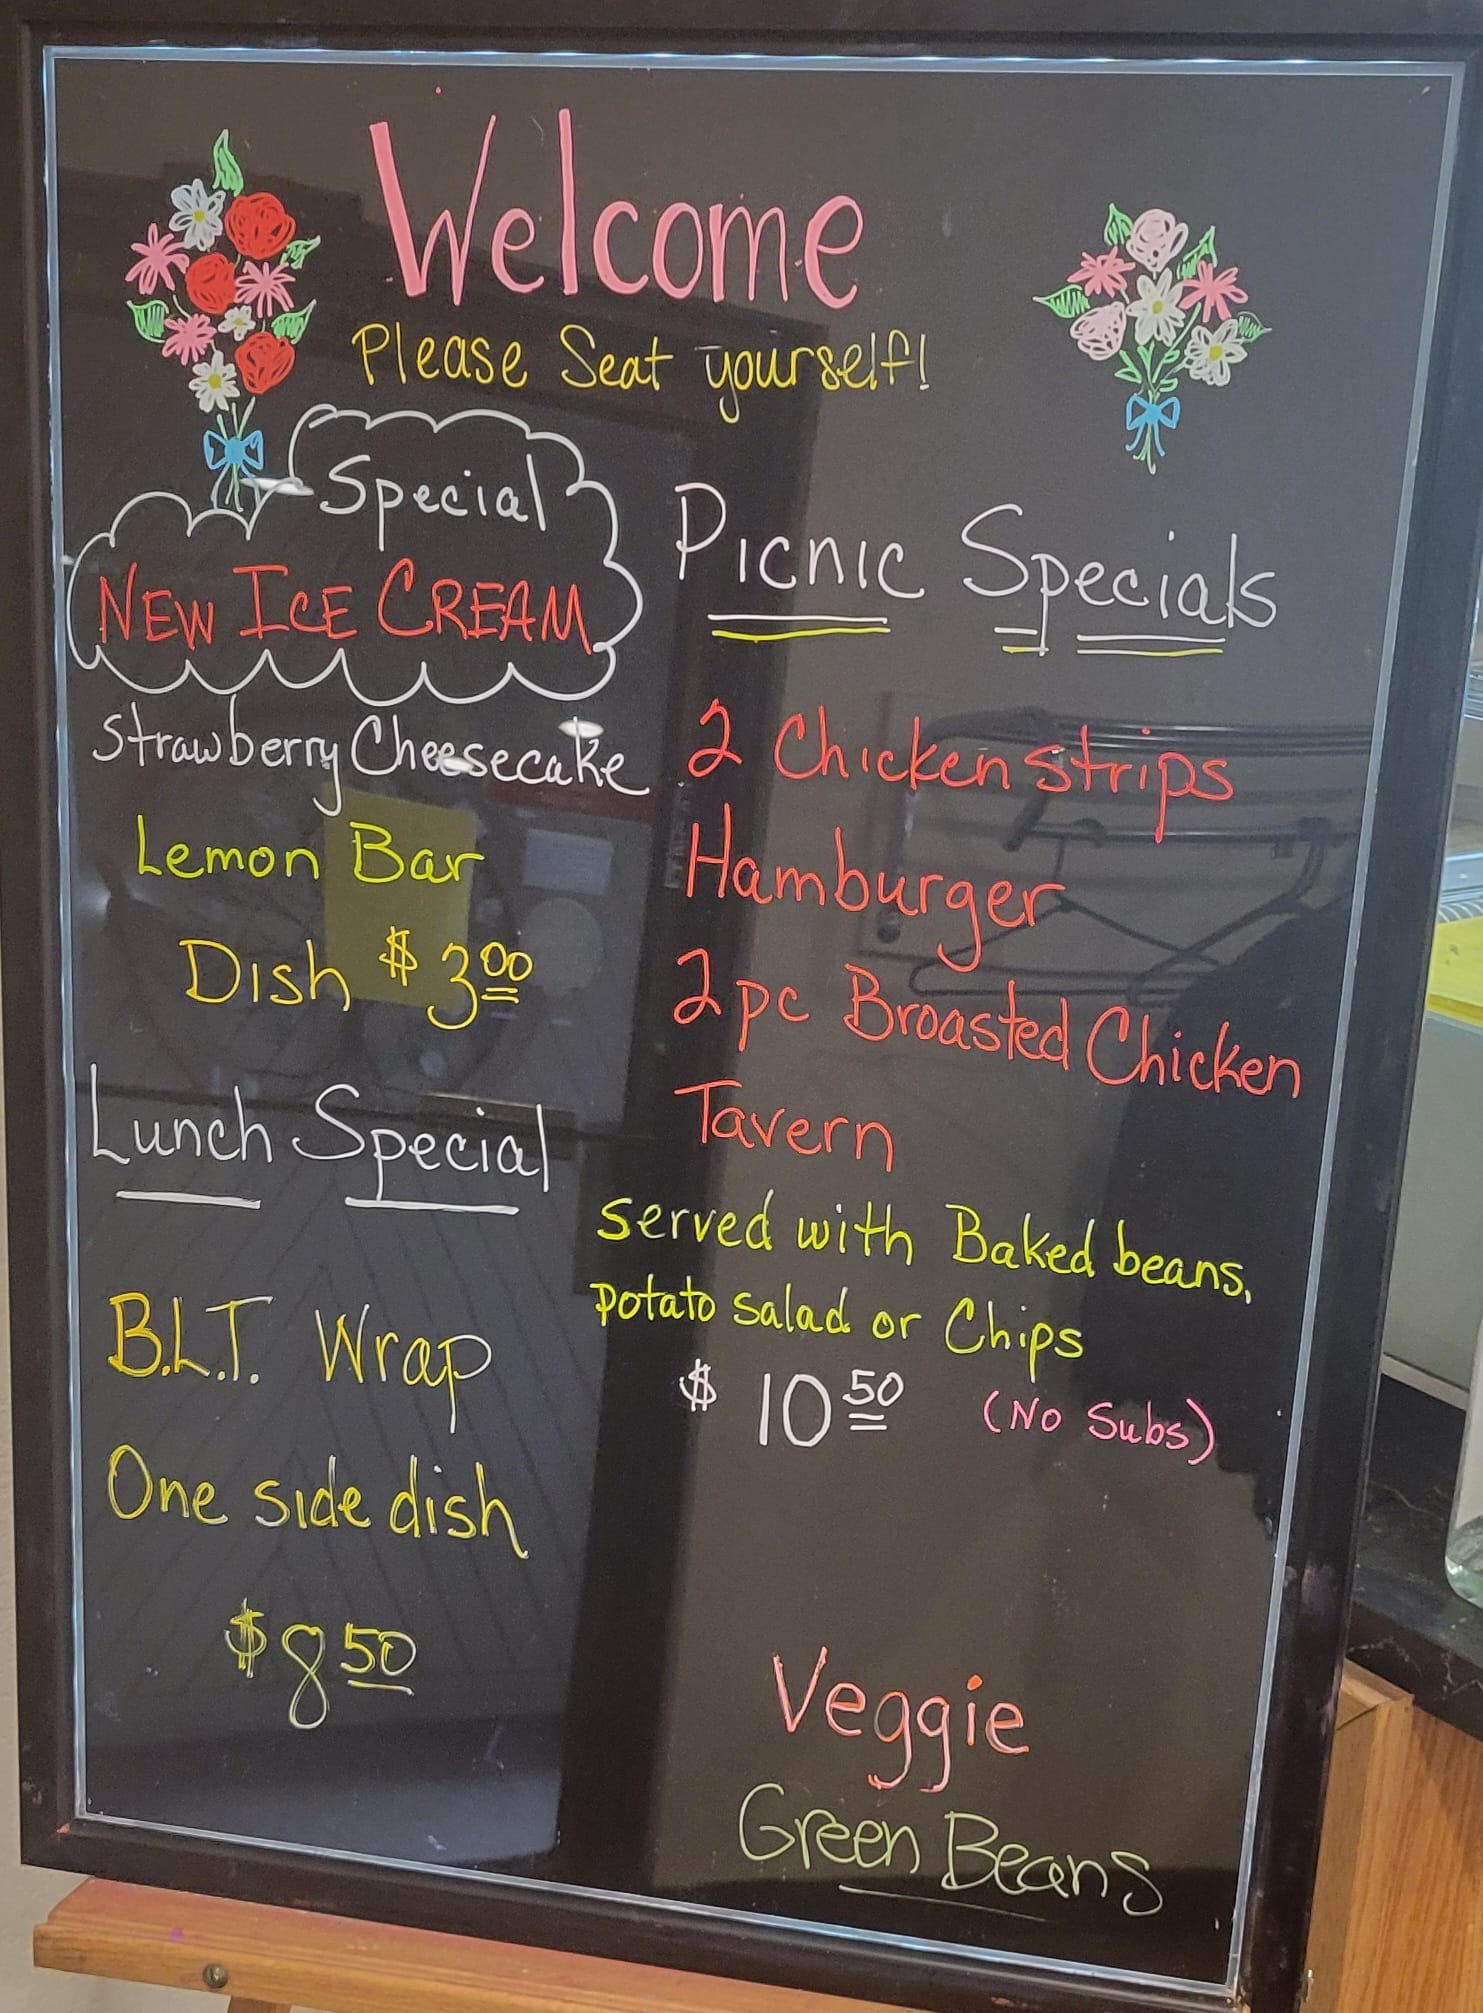 Welcome
Please Seat yourself!
Special
NEW ICE CREAM
Strawberry Cheesecake
Lemon Bar
Dish $3.00
Lunch Special
B.L.T. Wrap
One side dish
$8.50
Picnic Specials
2 Chicken strips
Hamburger
2pc Broasted Chicken
Tavern
served with Baked beans,
potato salad or Chips
$10.50 (No Subs)
Veggie
Green Beans